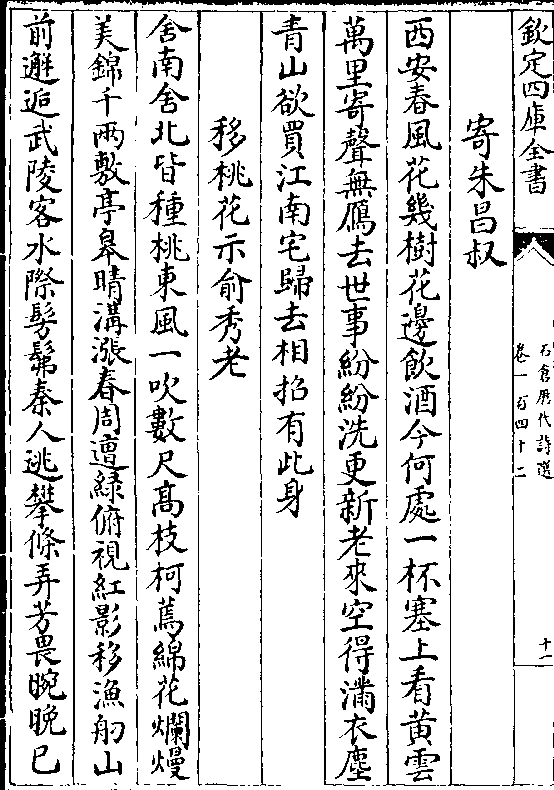 欽定四庫全書
石倉歷代詩選
卷一百四十二
十一
寄朱昌叔
西安春風花幾樹花邊飲酒今何處一杯塞上看黃雲
萬里寄聲無鴈去世事紛紛洗更新老來空得滿衣塵
青山欲買江南宅歸去相招有此身
移桃花示俞秀老
舍南舍北皆種桃東風一吹數尺髙枝柯蔫綿花爛熳
美錦千兩敷亭臯晴溝漲春周遭緑俯視紅影移漁舠山
前邂逅武陵客水際髣髴秦人逃攀條弄芳畏晼晚已